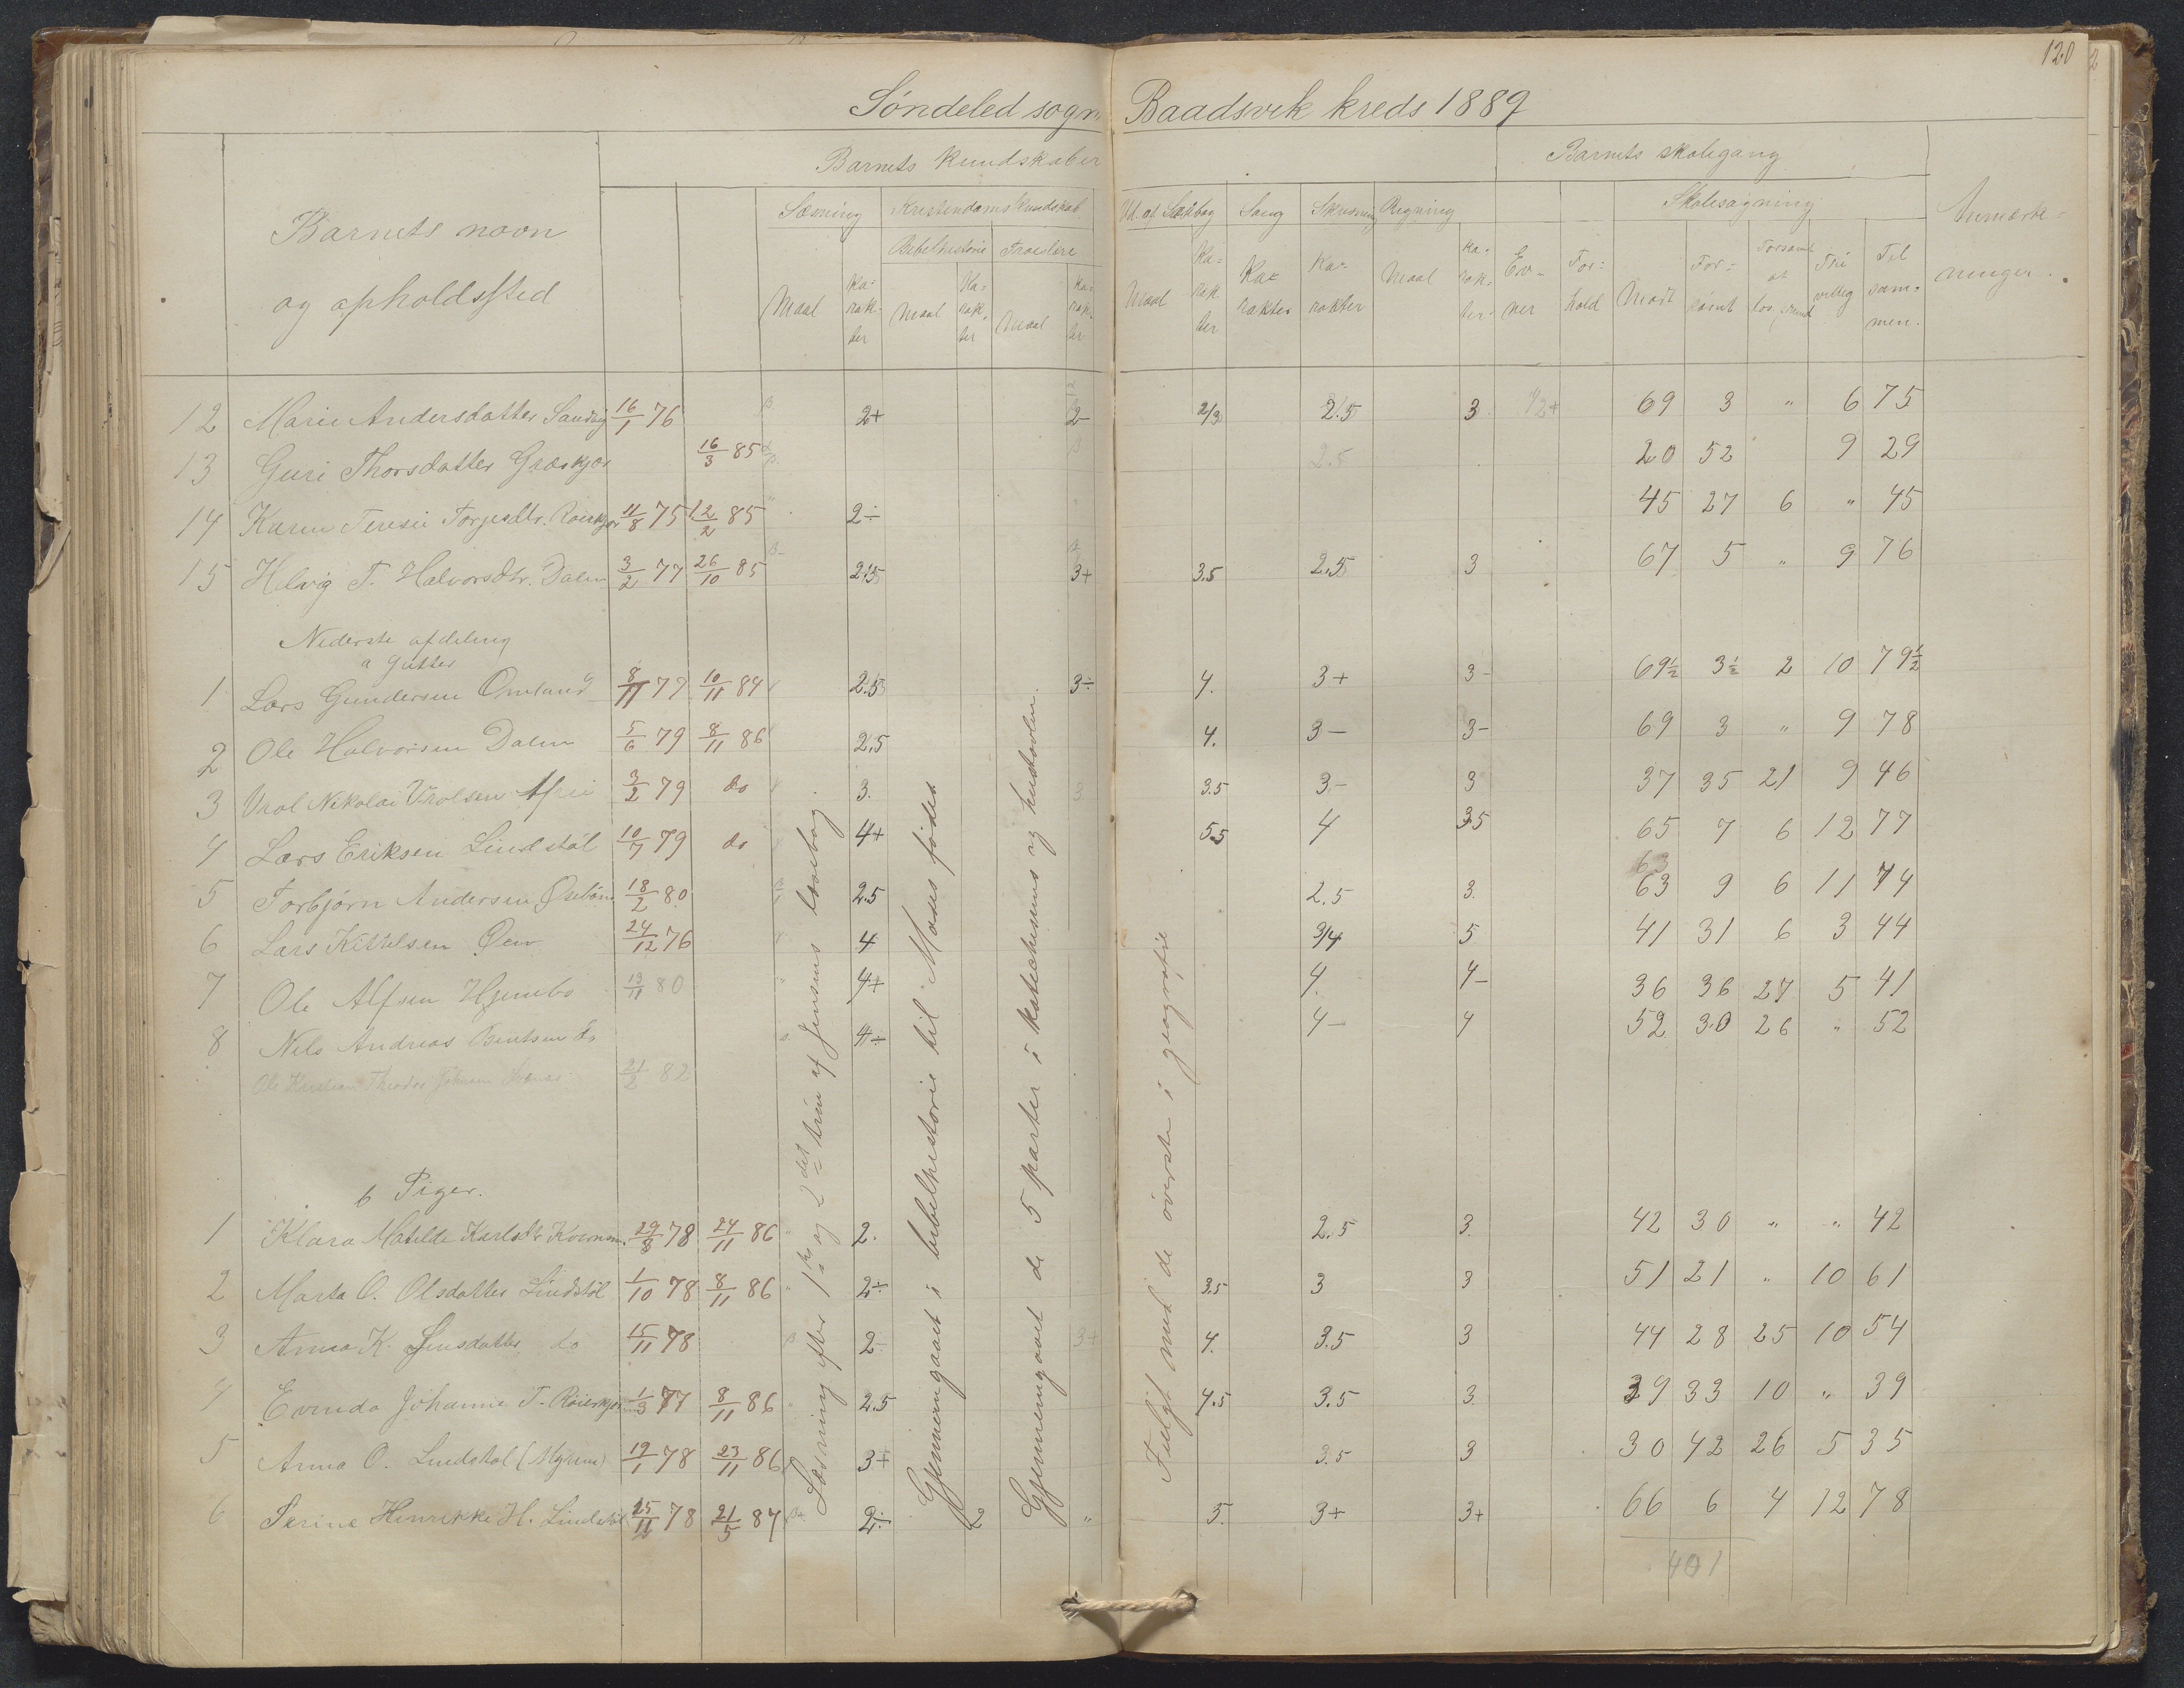 120
Søndeled sogn Baadsvik kreds 1889
Barnets navn og opholdssted
Barnets kundskaber
Barnets skolegang
Læsning Kristendomskundskab Ud. af Læsebog Sang Skrivning Regning
Skolesøgning
Anmærkninger.
Bibelhistorie Troeslære
Maal Karakter Maal Karakter Maal Karakter Maal Karakter Karakter Karakter Maal Karakter Evner Forhold Mødt Forsømt Forsømt af lov. grund Frivillig Tilsammen.
12 Marie Andersdatter Sandvig 16/1 76 2+ 2- 2/3 2.5 3 1/2+ 69 3 " 6 75
13 Guri Thorsdatter 16/3 85 2.5 20 52 9 29
14 Karen Teresie Torjesdtr. Røiskjær 11/8 75 12/2 85 2÷ 45 27 6 " 45
15 Helvig T. Halvorsdtr. Dalen 3/2 77 26/10 85 2.5 3+ 3.5 2.5 3 67 5 " 9 76
Nederste afdeling
a Gutter
1 Lars Gundersen Omland 8/11 77 10/11 84 2.5 3÷ 4. 3+ 3- 69½ 3½ 2 10 79½
2 Ole Halvorsen Dalen 5/6 79 8/11 86 2.5 4. 3- 3- 69 3 " 9 78
3 Vrol Nikolai Vrolsen 3/2 79 do 3. 3. 3.5 3- 3 37 35 21 9 46
4 Lars Eriksen Lindstøl 10/7 79 do 4+ 5.5 4 3.5 65 7 6 12 77
63
5 Torbjørn Andersen 18/2 80 2.5 2.5 3. 63 9 6 11 74
6 Lars Kittelsen Øen 24/12 76 4 3/4 5 41 31 6 3 44
7 Ole Alfsen Hjembo 13/11 80 4+ 4. 4- 36 36 27 5 41
8 Nils Andreas Bentsen do 4÷ 4- 4 52 30 26 " 52
Ole Kristian Theodor Johnsen 21/2 82
b Piger.
1 Klara Matilde Karlsdtr 29/8 78 24/11 86 2. 2.5 3. 42 30 " " 42
2 Marta O. Olsdatter Lindstøl 1/10 78 8/11 86 2÷ 3.5 3 3 51 21 " 10 61
3 Anna K. Jensdatter do 15/11 78 2- 3+ 4. 3.5 3 44 28 25 10 54
4 Evinda Johanne T. Røiskjær 1/3 77 8/11 86 2.5 4.5 3.5 3. 39 33 10 " 39
5 Anna O. Lindstøl (Myren) 19/1 78 23/11 86 3+ 3.5 3 30 42 26 5 35
6 Serine Henrikke H. Lindstøl 25/11 78 21/5 87 2÷ " 5. 3+ 3+ 66 6 4 12 78
401
Læsning efter 1ste og 2det trin af Jensens læsebog
Gjennemgaaet i bibelhistorie til Moses fødes
Gjennemgaaet de 5 parter i katechismus og hustavlen.
Fulgt med de øverste i geografie